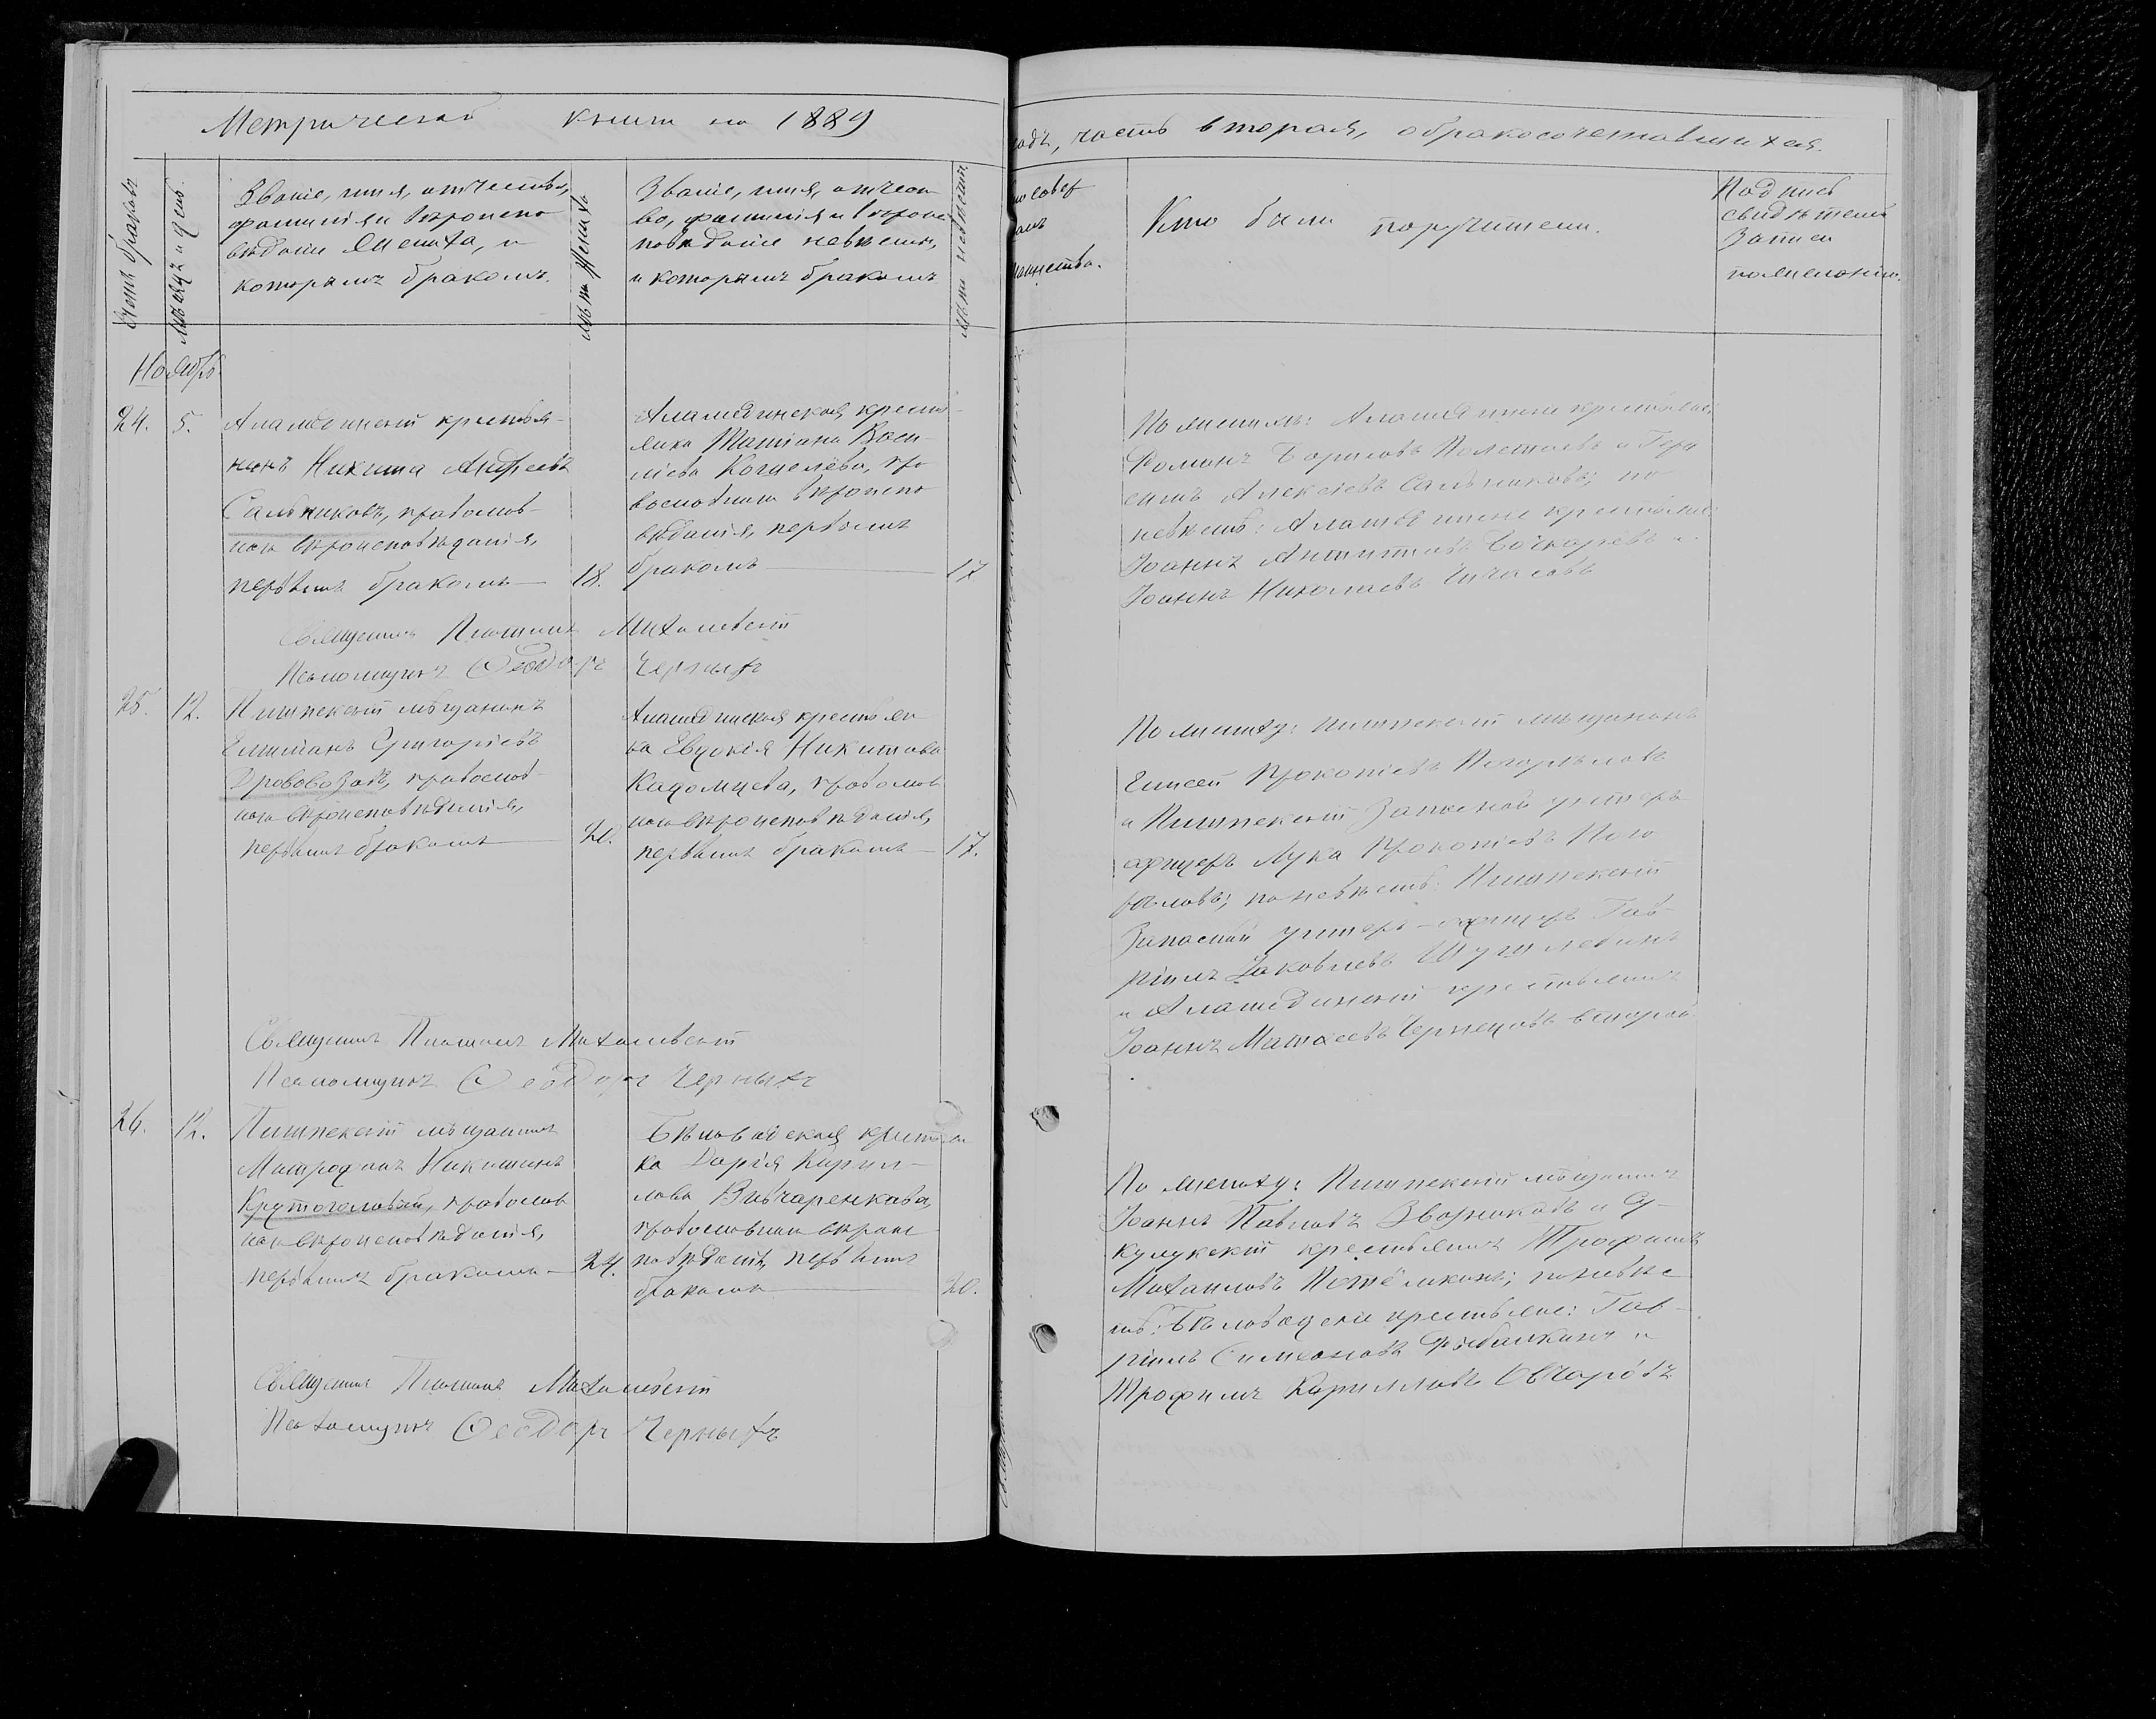 Метрической книги на 1889
годъ, часть вторая, о бракосочетавшихся.
Счетъ браковъ
Мѣсяцъ и день.
Званіе, имя, отчество,
фамилія и вѣроиспо
вѣданіе жениха, и
которымъ бракомъ.
Лѣта жениха
Званіе, имя, отчест
во, фамилія и вѣроис
повѣданіе невѣсты,
и которымъ бракомъ
Лѣта невѣсты.
Кто были поручители.
Подпись
свидѣтелей
записи
по желанію.
Ноябрь
24.
5.
Аламединскій крестья-
нинъ Никита Андреевъ
Сальниковъ, православ-
наго вѣроисповѣданія,
первымъ бракомъ
18.
Аламединская кресть-
янка Татіана Васи-
ліева Кошелева, пра
вославнаго вѣроиспо
вѣданія, первымъ
бракомъ
17
По женихѣ: Аламединскіе крестьяне:
Романъ Борисовъ Полетаевъ и Гера
симъ Алексѣевъ Сальниковъ; по
невѣстѣ: Аламединскіе крестьяне
Іоаннъ Антиповъ Бочкаревъ и
Іоаннъ Николаевъ
Священникъ Михалевскій
Псаломщикъ Ѳеодоръ Черныхъ
25.
12.
Пишпекскій мѣщанинъ
Григоріевъ
Дрововозовъ, православ-
наго вѣроисповѣданія,
первымъ бракомъ
20.
Аламединская крестьян
ка Евдокія Никитова
Кадомцева, православ
наго вѣроисповѣданія,
первымъ бракомъ
17.
По жениху: Пишпекскій мѣщанинъ
Елисей Прокопіевъ Погорѣловъ
и Пишпекскій запасной унтеръ
офицеръ Лука Прокопіевъ Пого
рѣловъ; по невѣстѣ: Пишпекскій
запасный унтеръ-офицеръ Гав-
ріилъ Іаковлевъ
и Аламединскій крестьянинъ
Іоаннъ Матѳеевъ Чернецовъ второй
Священникъ Михалевскій
Псаломщикъ Ѳеодоръ Черныхъ
26.
12.
Пишпекскій мѣщанинъ
Митрофанъ Никитинъ
Крутоголовый, православ
наго вѣроисповѣданія,
первымъ бракомъ
24.
Бѣловодская крестьян
ка Дарія Кирил-
лова Вивчаренкова,
православнаго вѣроис
повѣданія, первымъ
бракомъ
20.
По жениху: Пишпекскій мѣщанинъ
Іоаннъ Павловъ Зворыковъ и Су-
кулукскій крестьянинъ Трофимъ
Михаиловъ Потёмкинъ; по невѣс
тѣ: Бѣловодскіе крестьяне: Гав-
ріилъ Симеоновъ Рыбалкинъ и
Трофимъ Кирилловъ Овчаровъ
Священникъ Михалевскій
Псаломщикъ Ѳеодоръ Черныхъ